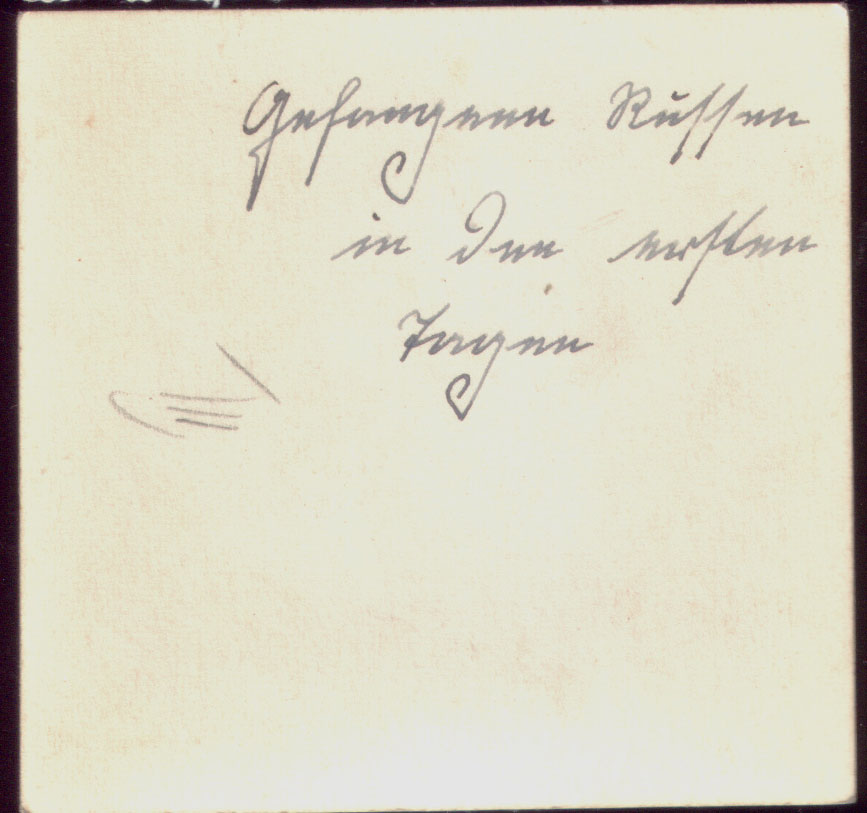 Gefangene Russen
in den ersten
Tagen